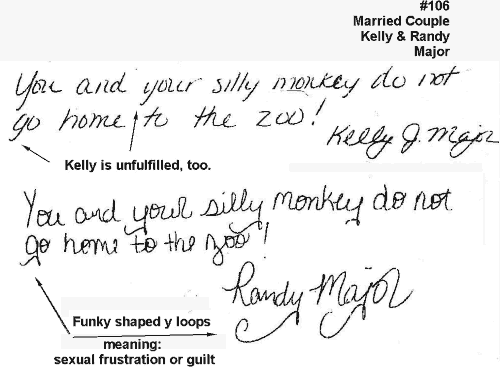 #106
Married Couple
Kelly & Randy
Major
You and your silly monkey do not
go home to the zoo!
Kelly J. Major
Kelly is unfulfilled, too.
You and your silly monkey do not
go home to the zoo!
Randy Major
Funky shaped y loops
meaning:
sexual frustration or guilt